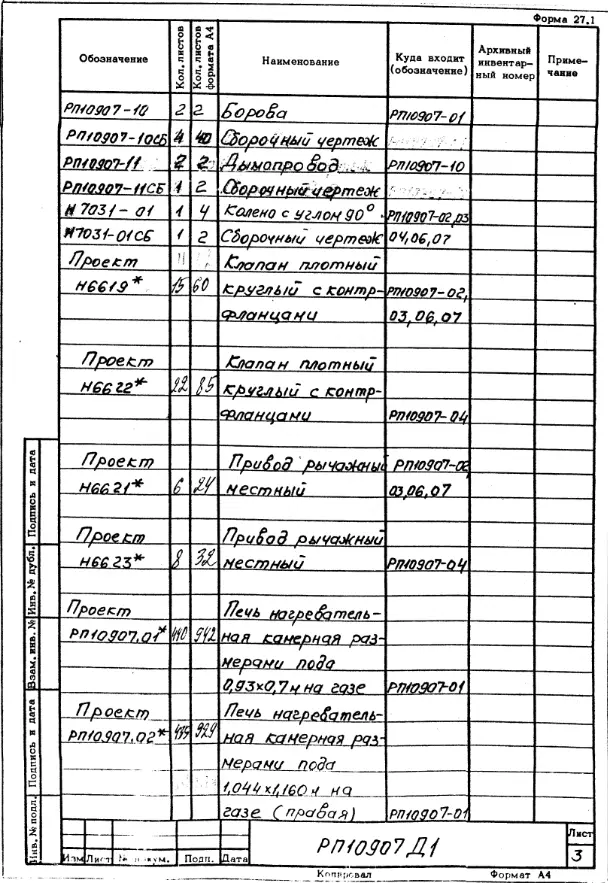 Форма 27.1
Обозначение Кол. листов Кол. листов формата А4 Наименование Куда входит (обозначение) Архивный инвентарный номер Примечание
РП10907-10 2 2 Борова РП10907-01
РП10907-10СБ 4 Сборочный чертеж
РП10907-11 2 2 Дымопровод РП10907-10
РП10907-11СБ 1 2 Сборочный чертеж
Н7031-01 1 4 Колено с углом 90° РП10907-02,03
Н7031-01СБ 1 2 Сборочный чертеж 04,06,07
Проект Клапан плотный
Н6619* 15 60 круглый с контр- РП10907-02,
фланцами 03,06,07
Проект Клапан плотный
Н6622* 22 85 круглый с контр-
фланцами РП10907-04
Проект Привод рычажный РП10907-02
Н6621* 6 24 местный 03,06,07
Проект Привод рычажный
Н6623* 8 32 местный РП10907-04
Проект Печь нагреватель-
РП10907.01* 942 ная камерная раз-
мерами пода
0,93х0,7м на газе РП10907-01
Проект Печь нагреватель-
РП10907.02* 929 ная камерная раз-
мерами пода
1,044х1,160м на
газе (правая) РП10907-01
Инв. № подл. Подпись и дата Взам. инв. № Инв. № дубл. Подпись и дата
Изм Лист № докум. Подп. Дата
РП10907Д1
Лист
3
Копировал Формат А4